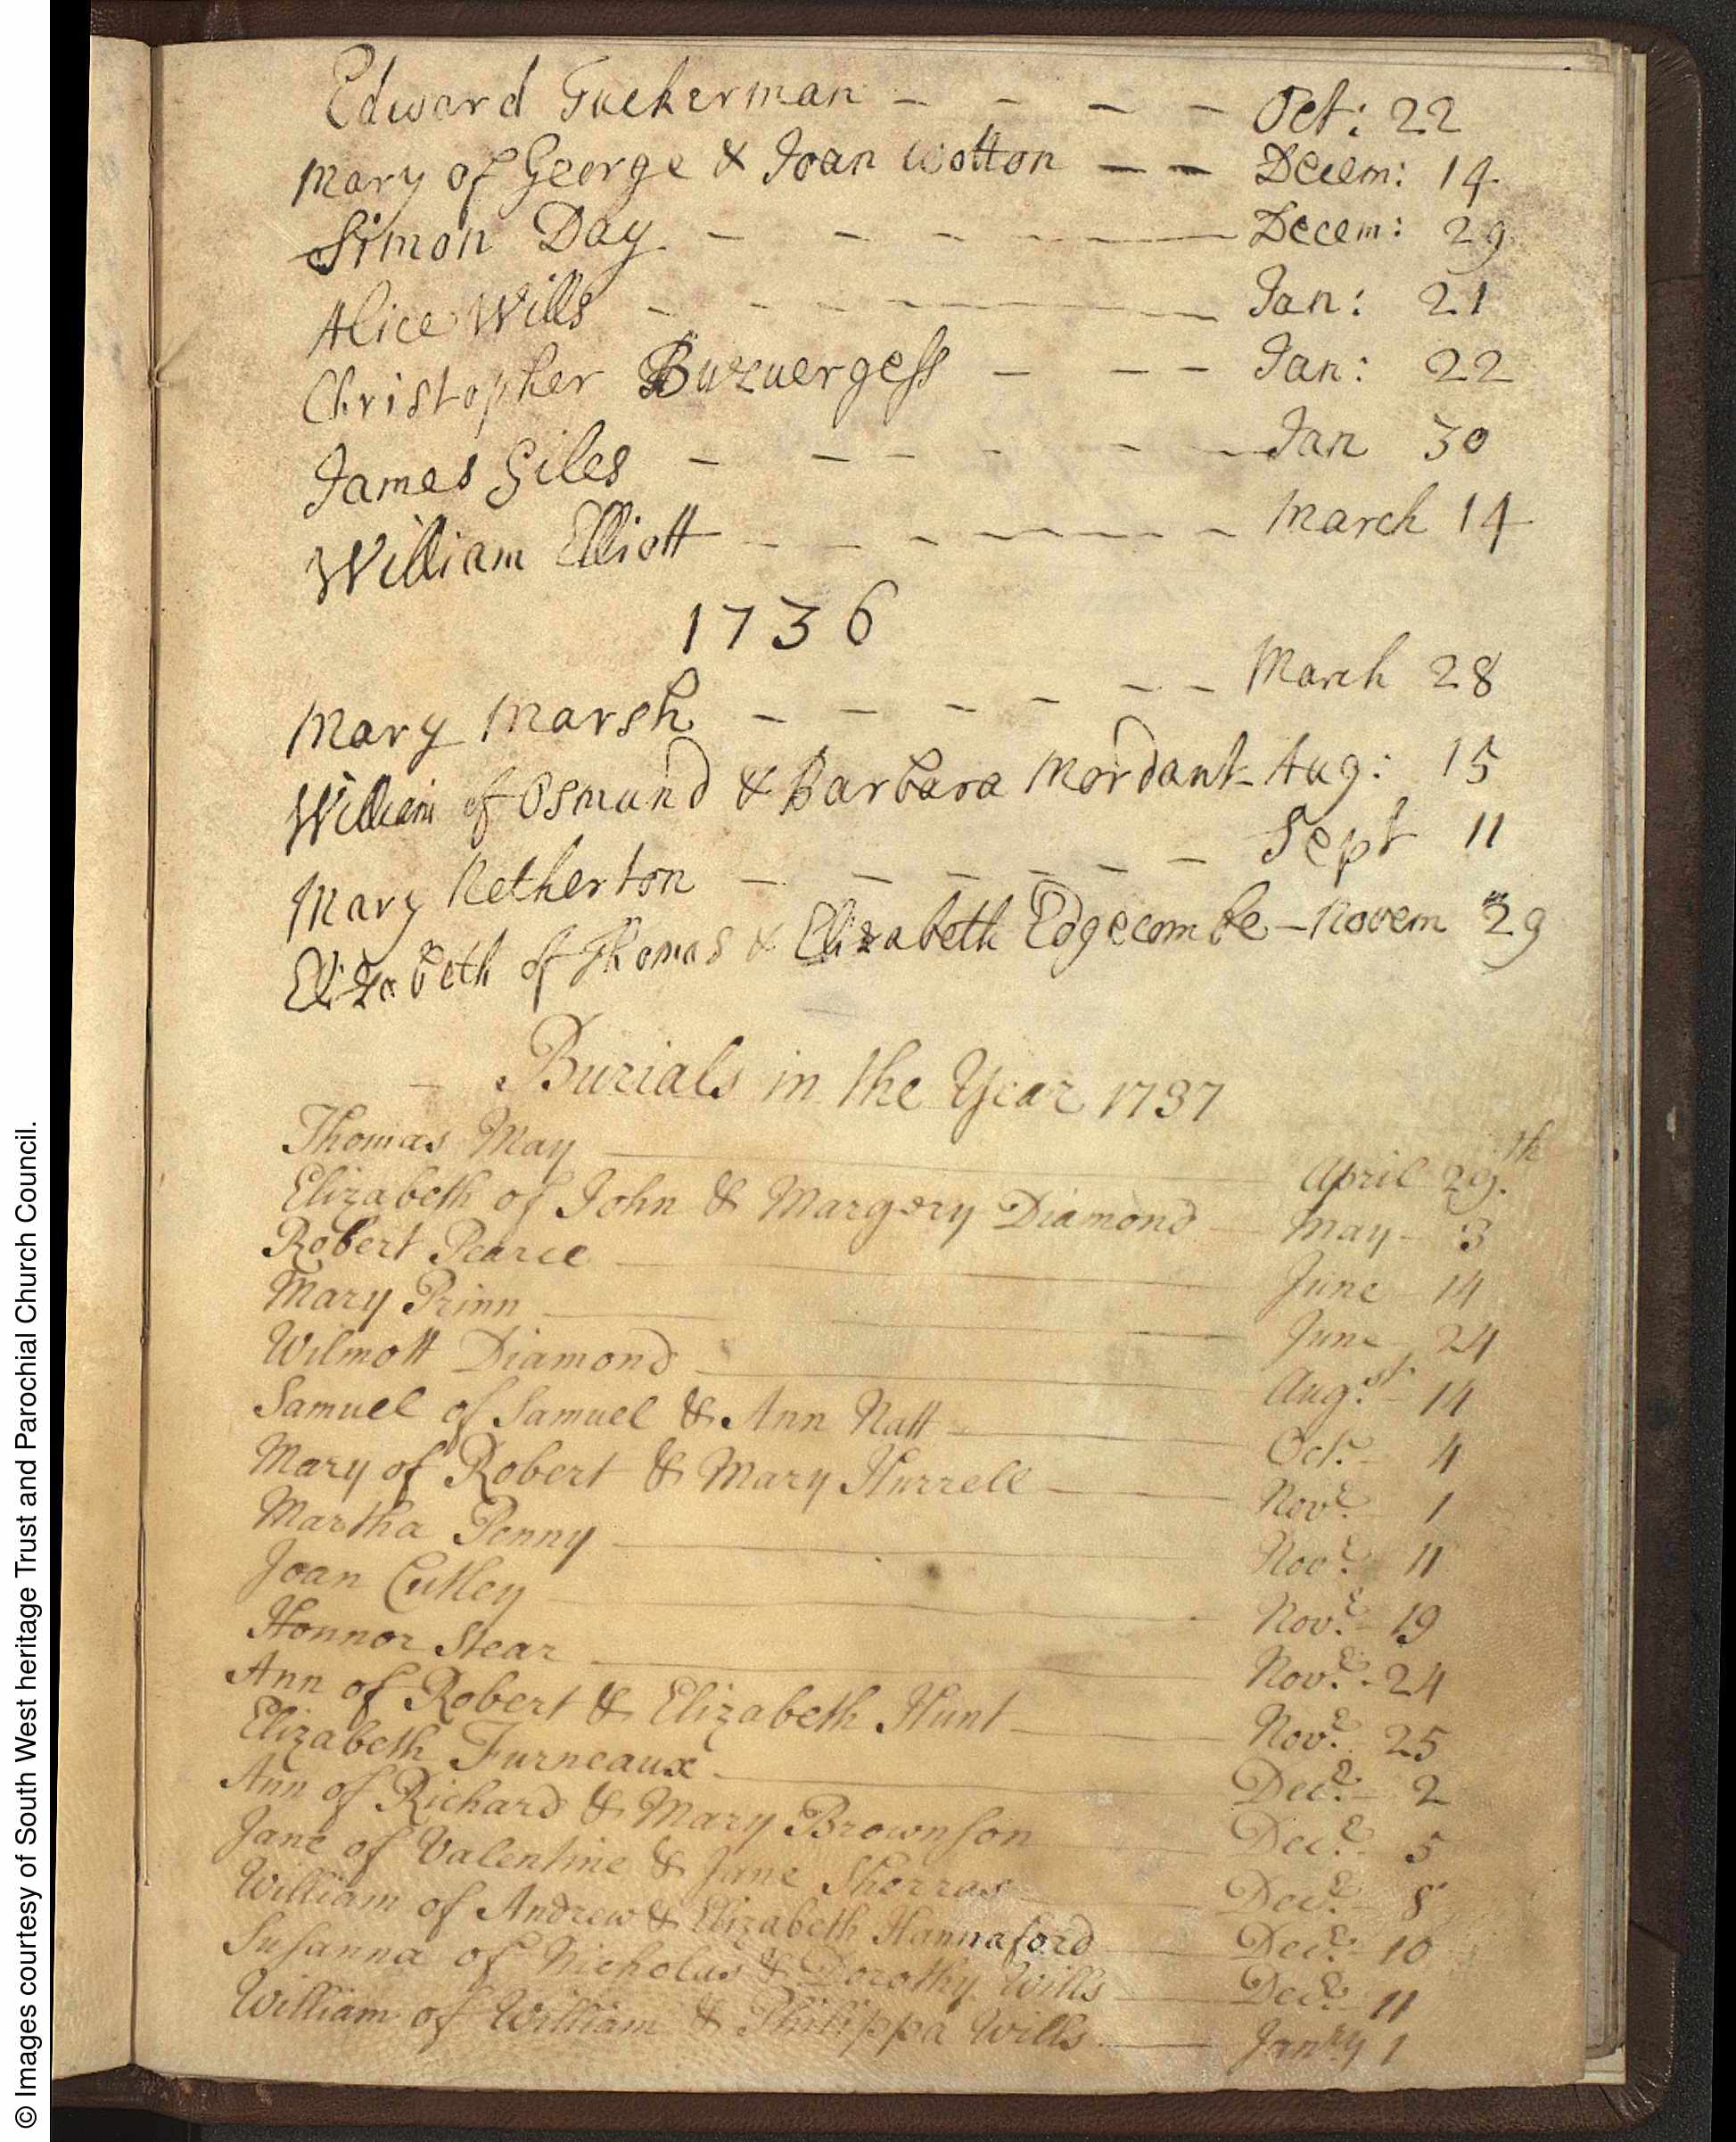 Edward Tuckerman - - - - Oct: 22
Mary of George & Joan Wotton - - Decem: 14
Simon Day - - - - Decem: 29
Alice Wills - - - - Jan: 21
Christopher Buzuergess - - - Jan: 22
James Giles - - - - - Jan 30
William Elliott - - - - - March 14
1736
Mary Marsh - - - - - - March 28
William of Osmund & Barbara Mordant - Aug: 15
Mary Netherton - - - - - - Sept 11
Elizabeth of Thomas & Elizabeth Edgecombe - Novem 29
Burials in the Year 1737
Thomas May April 29.th
Elizabeth of John & Margery Diamond May - 3
Robert Pearce June 14
Mary Prinn June 24
Wilmott Diamond Aug.st 14
Samuel of Samuel & Ann Natt Oct.r 4
Mary of Robert & Mary Hurrell Nov.r 1
Martha Penny Nov.r 11
Joan Cutley Nov.r 19
Honnor Stear Nov.r 24
Ann of Robert & Elizabeth Hunt Nov.r 25
Elizabeth Furneaux Dec.r 2
Ann of Richard & Mary Brownson Dec.r 5
Jane of Valentine & Jane Sherras Dec.r 8
William of Andrew & Elizabeth Hannaford Dec.r 10
Susanna of Nicholas & Dorothy Wills Dec.r 11
William of William & Philippa Wills Janry 1
© Images courtesy of South West heritage Trust and Parochial Church Council.